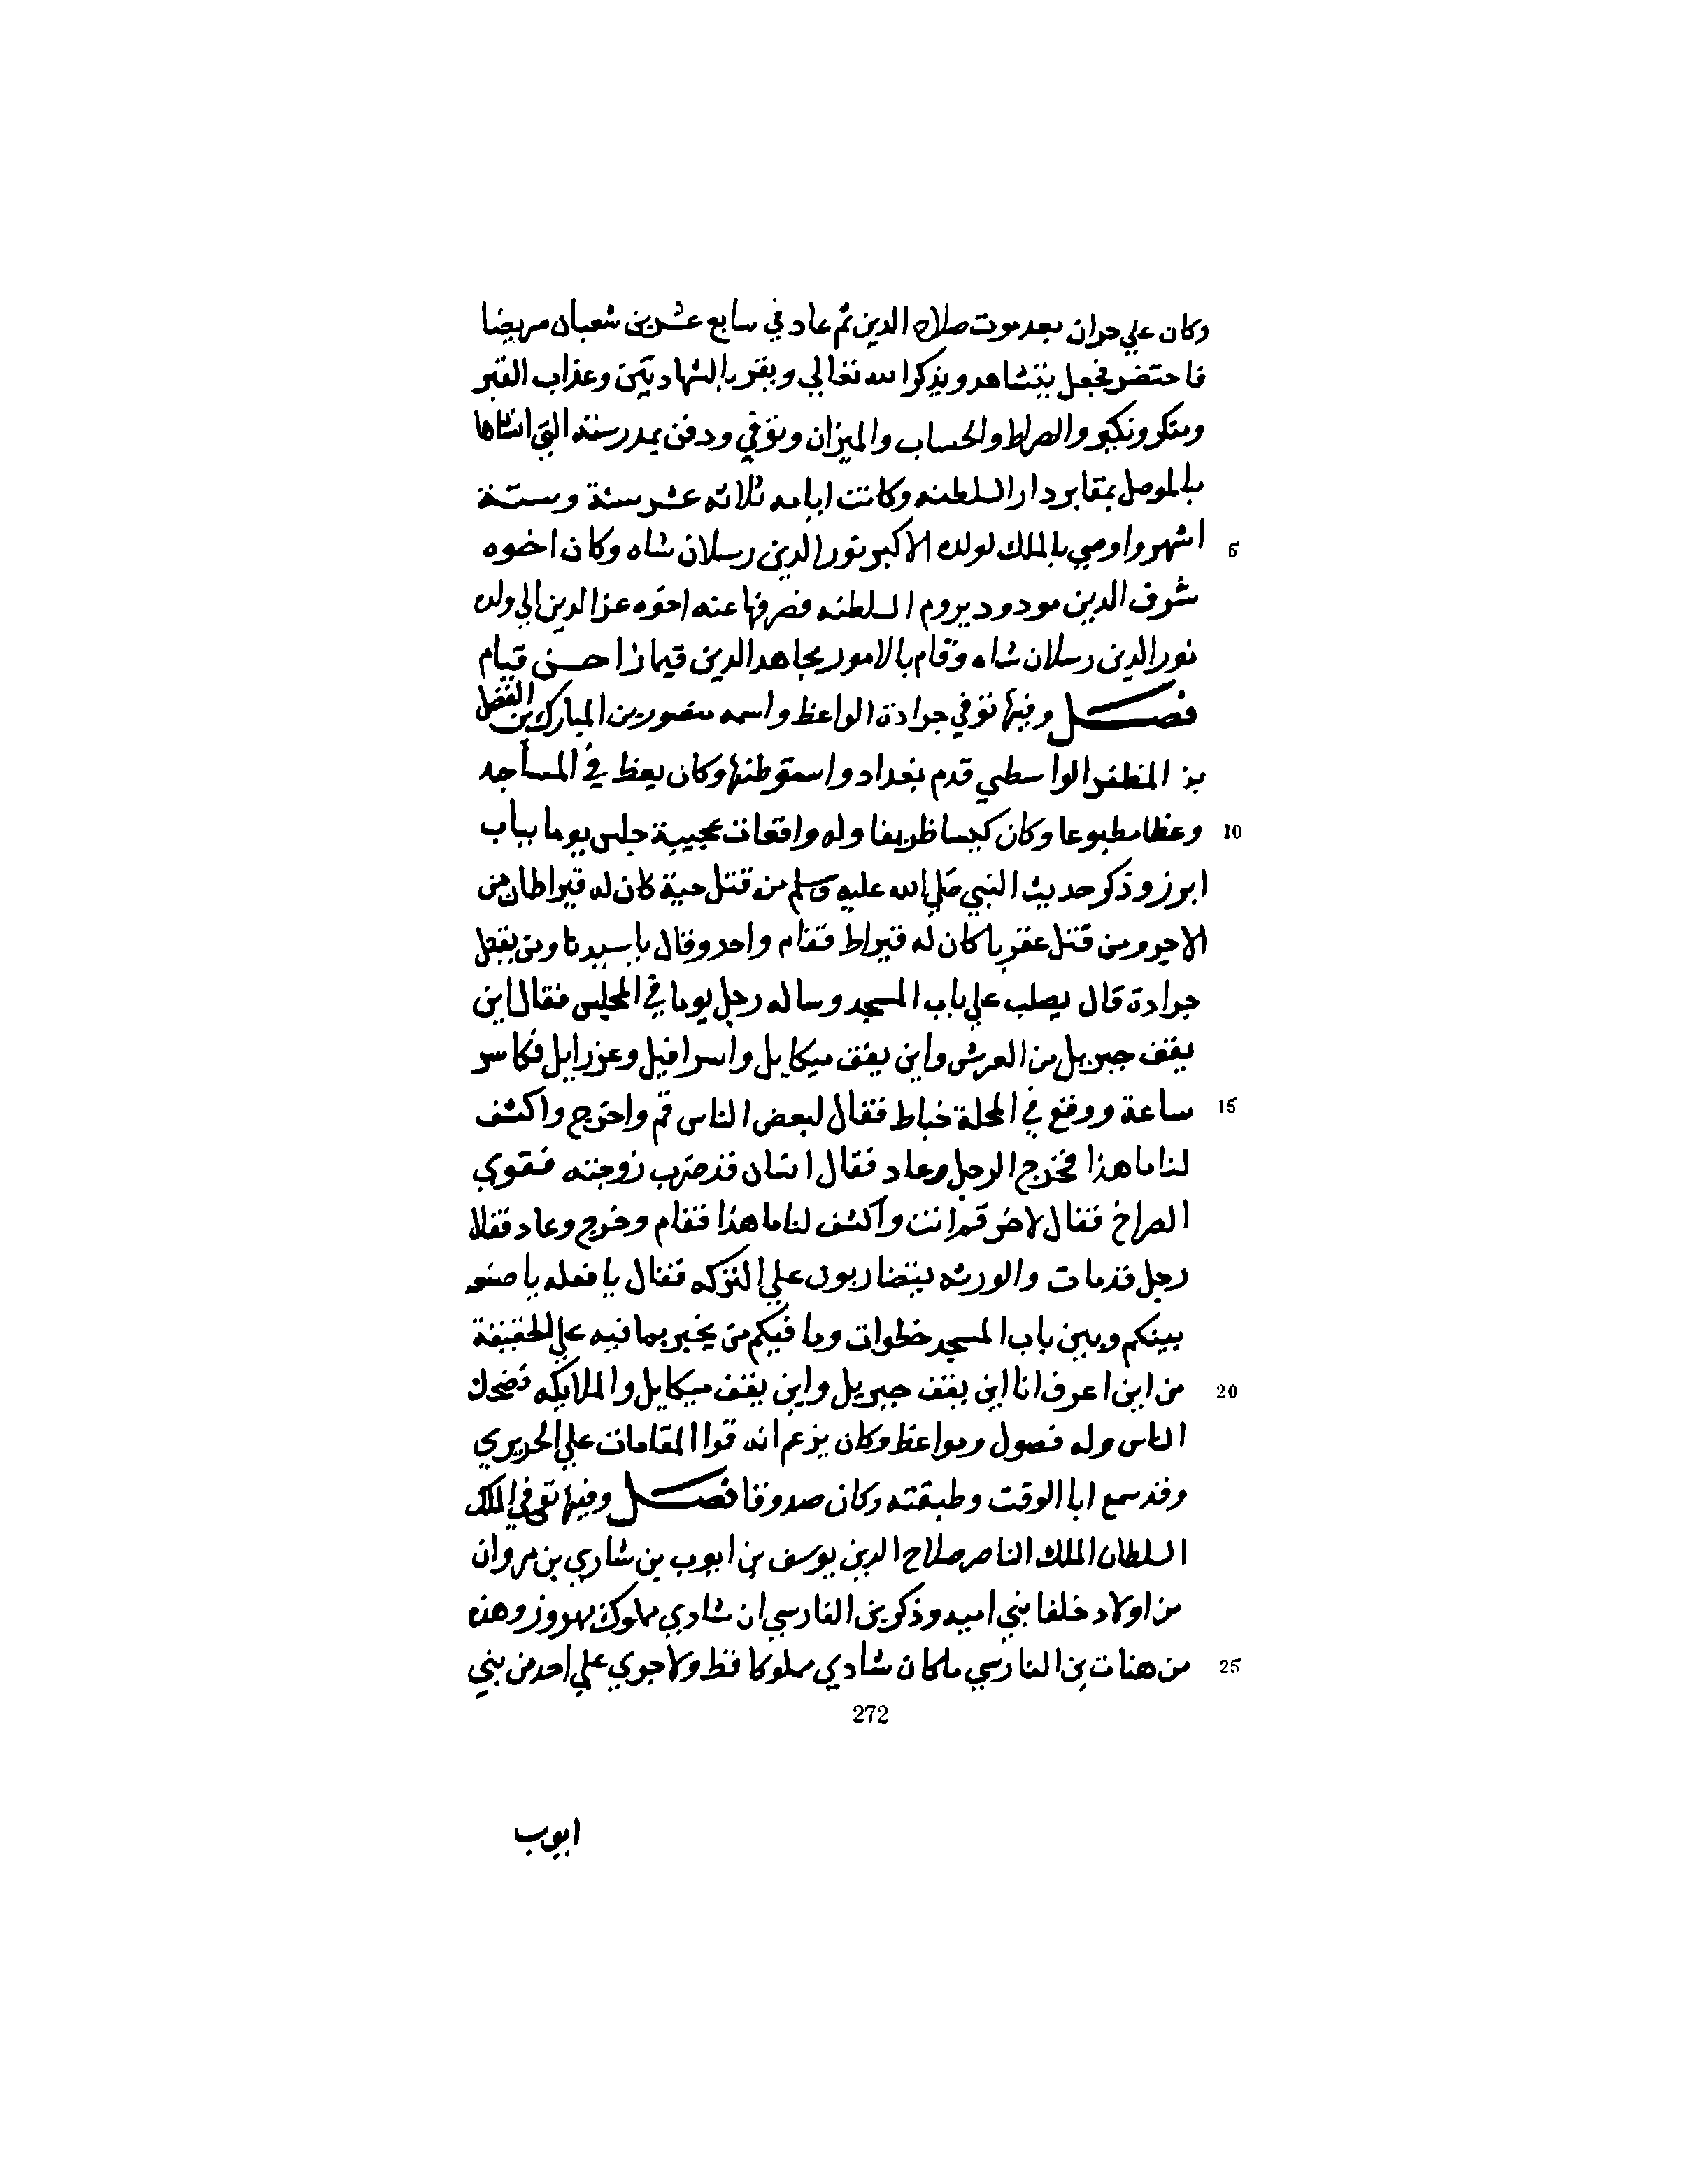 وكان علي حران بعد موت صلاح الدين ثم عاد في سابع عشرين شعبان مريضا
فاحتضر فجعل يتشاهد ويذكر الله تعالي ويقر بالشهادتين وعذاب القبر
ومنكر ونكير والصراط والحساب والميزان وتوفي ودفن بمدرسته التي انشاها
بالموصل بمقابر دار السلطنه وكانت ايامه ثلاثه عشر سنة وستة
5 اشهر واوصي بالملك لولده الاكبر نور الدين رسلان شاه وكان اخوه
شرف الدين مودود يروم السلطنه فصرفها عنه اخوه عز الدين الي ولده
نور الدين رسلان شاه وقام بالامور مجاهد الدين قيماز احسن قيام
فصل وفيها توفي جرادة الواعظ واسمه منصور بن المبارك بن الفضل
بن المظفر الواسطي قدم بغداد واستوطنها وكان يعظ في المساجد
10 وعظا مطبوعا وكان كيسا ظريفا وله واقعات عجيبة جلس يوما بباب
ابرز وذكر حديث النبي صلي الله عليه وسلم من قتل حية كان له قيراطان من
الاجر ومن قتل عقربا كان له قيراط فقام واحد وقال يا سيدنا ومن يقتل
جرادة قال يصلب علي باب المسجد وساله رجل يوما في المجلس فقال اين
يقف جبريل من العرش واين يقف ميكايل واسرافيل وعزرايل فكاسر
15 ساعة ووقع في المحلة خباط فقال لبعض الناس قم واخرج واكشف
لنا ما هذا فخرج الرجل وعاد فقال انسان قد ضرب زوجته فقوي
الصراخ فقال لاخر قم انت واكشف لنا ما هذا فقام وخرج وعاد فقال
رجل قد مات والورثه يتضاربون علي التركه فقال يا فعله يا صنعه
بينكم وبين باب المسجد خطوات وما فيكم من يخبر بما فيه علي الحقيقة
20 من اين اعرف انا اين يقف جبريل واين يقف ميكايل والملايكه فضحك
الناس وله فصول ومواعظ وكان يزعم انه قرا المقامات علي الحريري
وقد سمع ابا الوقت وطبقته وكان صدوقا فصل وفيها توفي الملك
السلطان الملك الناصر صلاح الدين يوسف بن ايوب بن شاري بن مروان
من اولاد خلفا بني اميه وذكر بن الفارسي ان شادي مملوك بهروز وهذه
25 من هنات بن الفارسي ما كان شادي مملوكا قط ولا جري علي احد من بني
272
ايوب